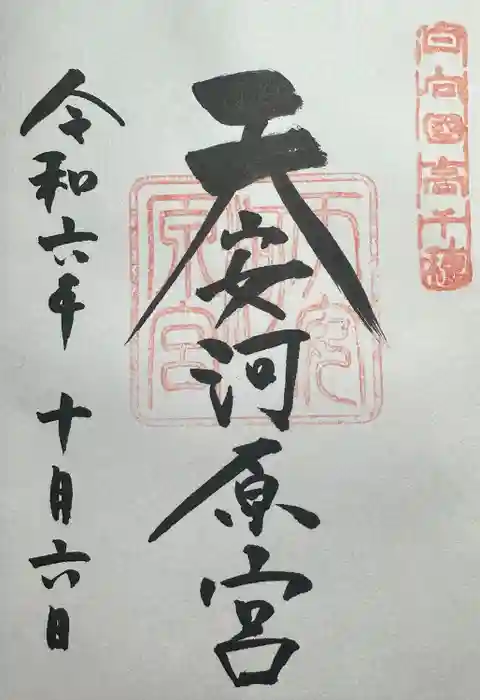 日向國高千穂
天安河原宮
令和六年 十月六日